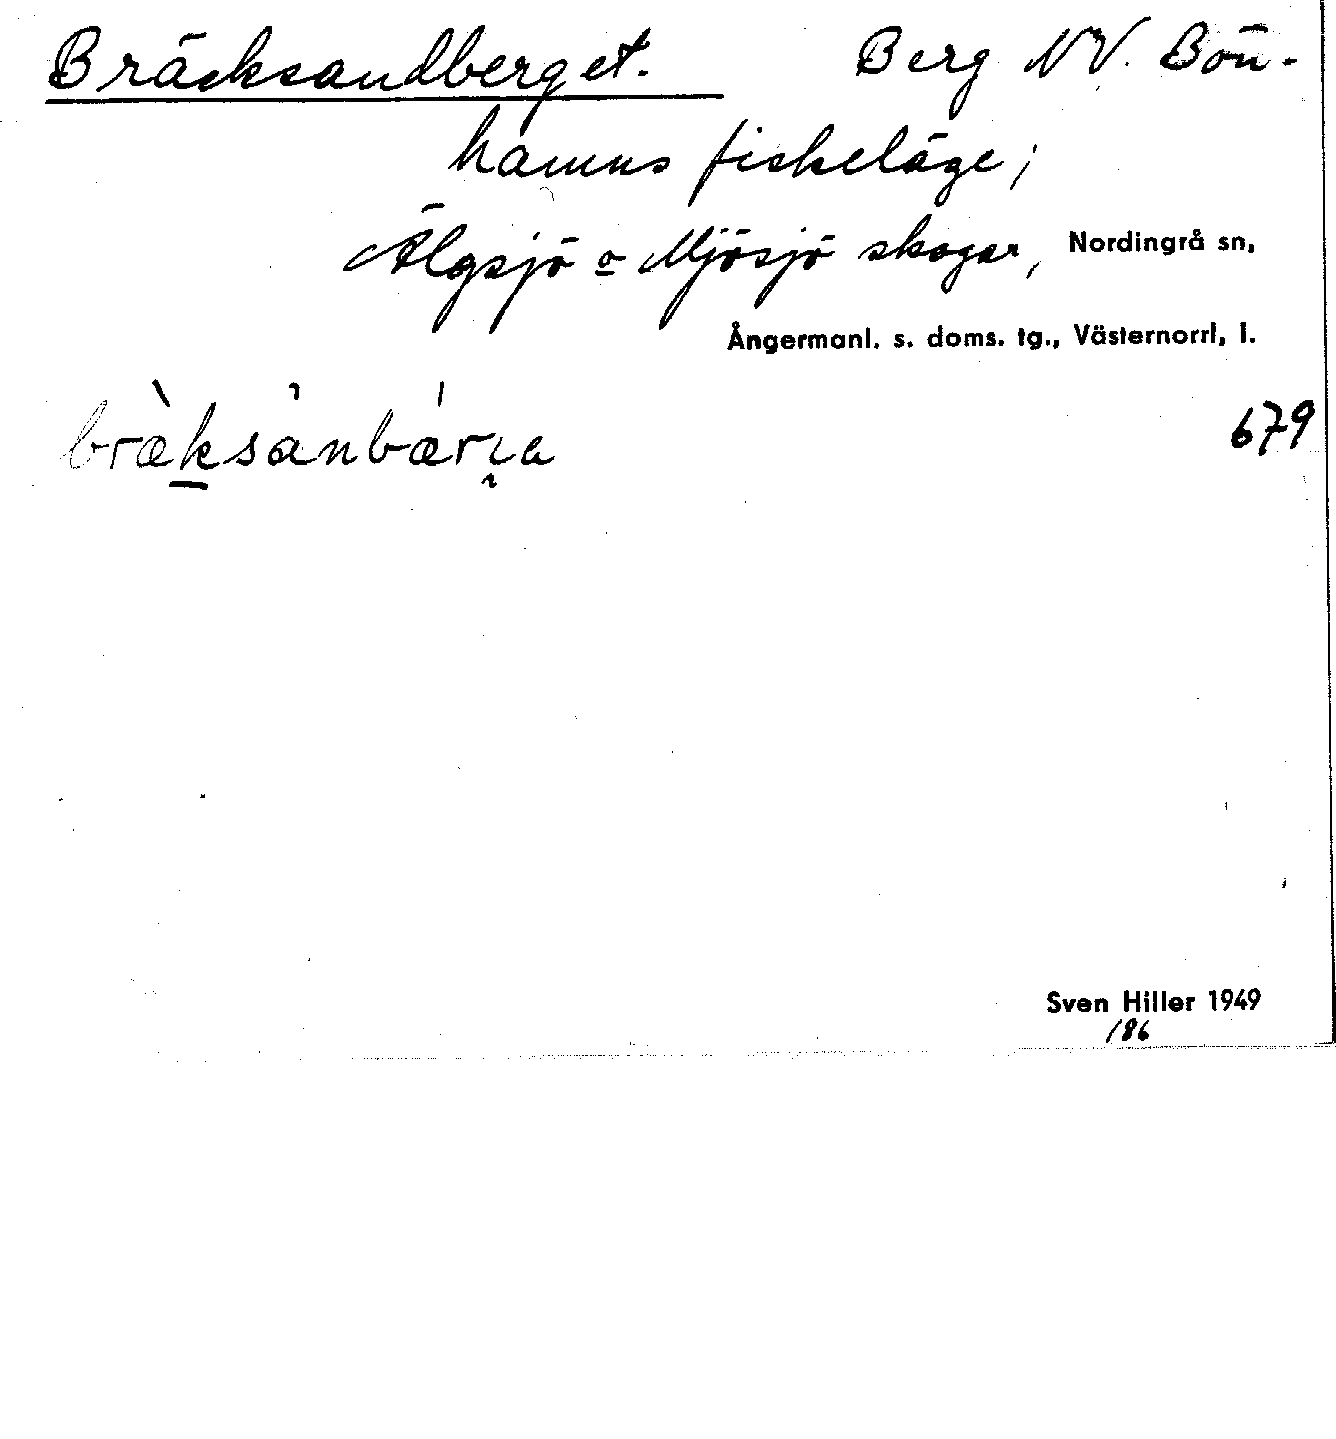 Bräcksandberget. Berg NV. Bön-
hamns fiskeläge;
Älgsjö o Mjösjö skogar, Nordingrå sn,
Ångermanl. s. doms. tg., Västernorrl, l.
679
Sven Hiller 1949
186